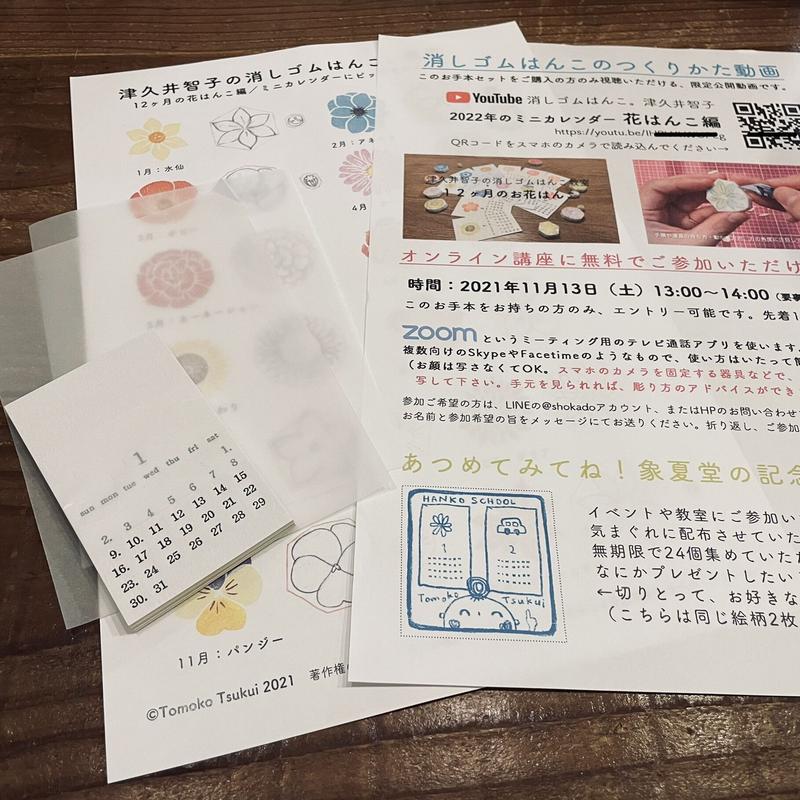 津久井智子の消しゴムはんこ
12ヶ月の花はんこ編／ミニカレンダーにピッ
1月：水仙
2月：アネ
4月
11月：パンジー
©Tomoko Tsukui 2021
著作権
1
sun mon tue wed thu fri sat
1.
2. 3 4 5 6 7 8
9. 10. 11 12 13 14 15
16. 17 18 19 20 21 22
23. 24 25 26 27 28 29
30. 31
消しゴムはんこのつくりかた動画
このお手本セットをご購入の方のみ視聴いただける、限定公開動画です。
YouTube 消しゴムはんこ。津久井智子
2022年のミニカレンダー 花はんこ編
https://youtu.be/
QRコードをスマホのカメラで読み込んでください→
津久井智子の消しゴムはんこ教室
12ヶ月のお花はんこ
オンライン講座に無料でご参加いただけ
時間：2021年11月13日（土）13:00〜14:00
このお手本をお持ちの方のみ、エントリー可能です。先着1
zoom というミーティング用のテレビ通話アプリを使います。
複数向けのSkypeやFacetimeのようなもので、使い方はいたって簡
（お顔は写さなくてOK。スマホのカメラを固定する器具などで、
写して下さい。手元を見られれば、彫り方のアドバイスができ
参加ご希望の方は、LINEの@shokadoアカウント、またはHPのお問い合わせ
お名前と参加希望の旨をメッセージにてお送りください。折り返し、ご参加
あつめてみてね！象夏堂の記念
HANKO SCHOOL
1
2
Tomoko Tsukui
イベントや教室にご参加い
気まぐれに配布させていた
無期限で24個集めていた
なにかプレゼントしたい
←切りとって、お好きな
（こちらは同じ絵柄2枚